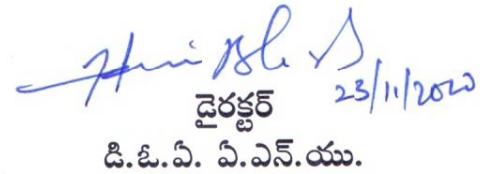 23/11/2020
డైరక్టర్
డి.ఓ.ఏ. ఏ.ఎన్.యు.